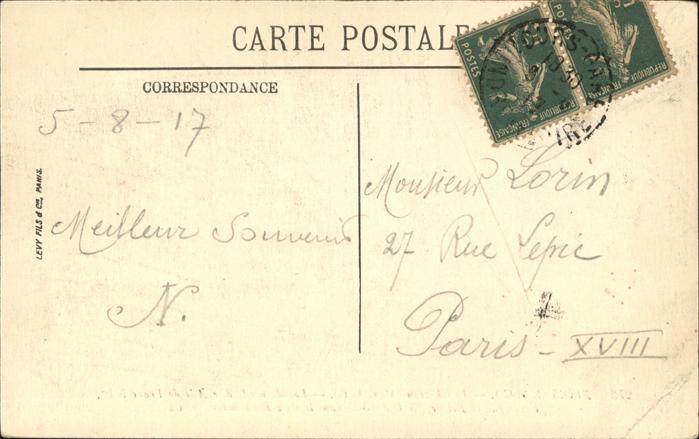 CARTE POSTALE
CORRESPONDANCE
5-8-17
Meilleur Souvenir
N.
Monsieur Lorin
27 Rue Lepic
Paris - XVIII
LEVY FILS & Cie, PARIS.
POSTES
REPUBLIQUE FRANÇAISE
REPUBLIQUE FRANÇAISE